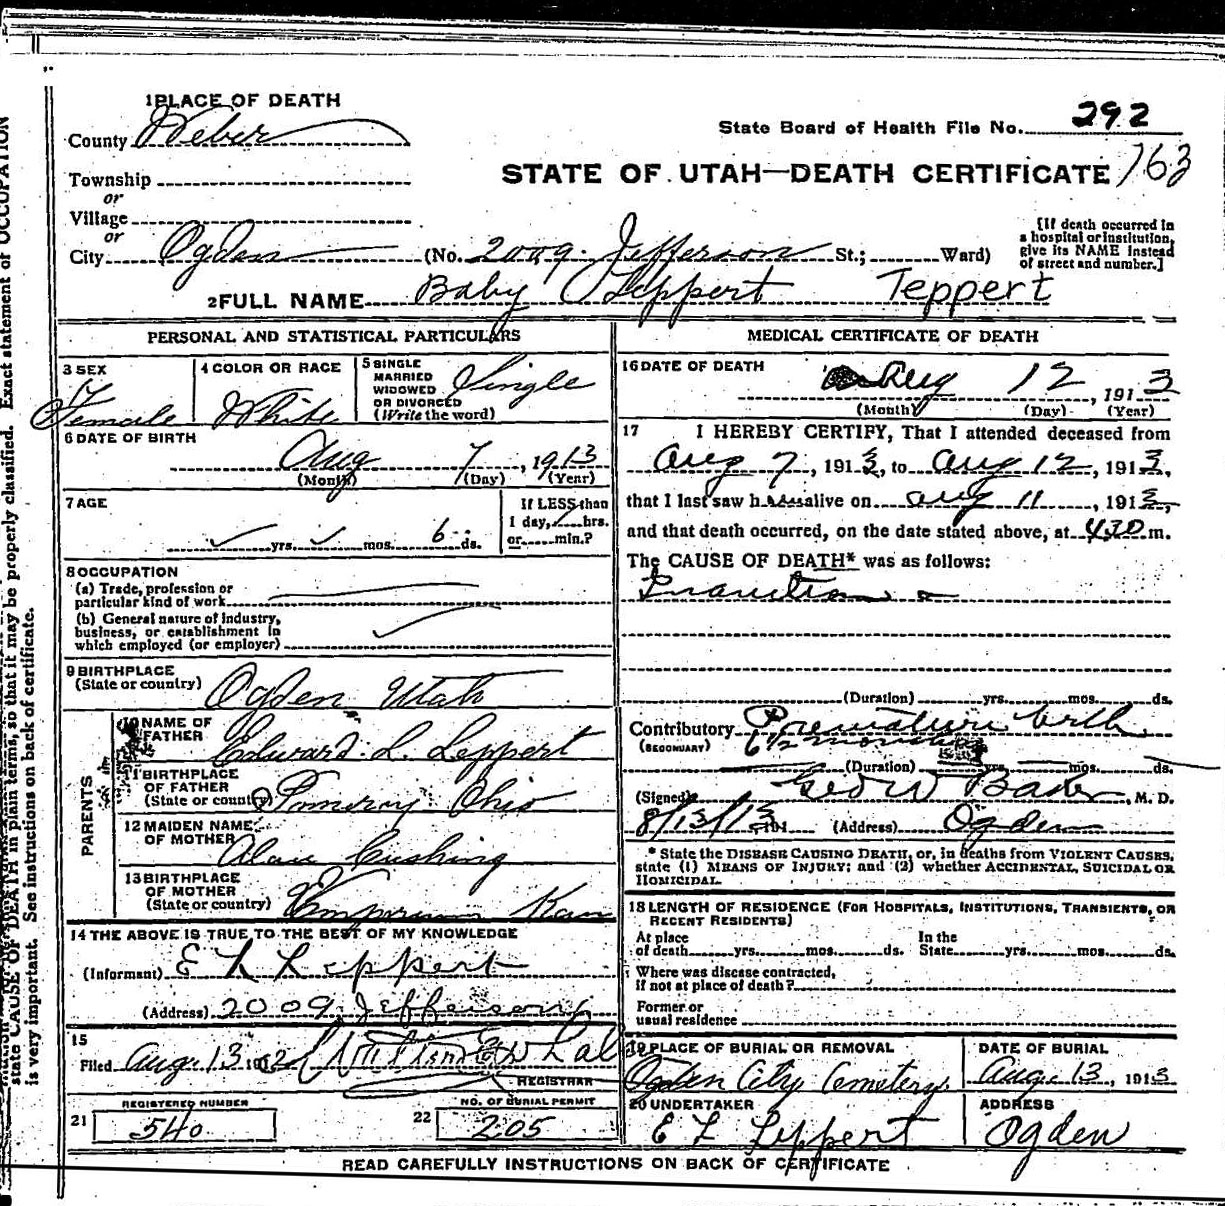 1 PLACE OF DEATH
County Weber
State Board of Health File No. 292
Township
or
STATE OF UTAH—DEATH CERTIFICATE 163
Village
or
City Ogden (No. 2009 Jefferson St.; Ward)
[If death occurred in
a hospital or institution,
give its NAME instead
of street and number.]
2 FULL NAME Baby Leppert Teppert
PERSONAL AND STATISTICAL PARTICULARS
3 SEX
Female
4 COLOR OR RACE
White
5 SINGLE
MARRIED
WIDOWED
OR DIVORCED
(Write the word)
Single
6 DATE OF BIRTH
Aug 7, 1913
(Month) (Day) (Year)
7 AGE
yrs. mos. 6 ds.
If LESS than
1 day, hrs.
or min.?
8 OCCUPATION
(a) Trade, profession or
particular kind of work
(b) General nature of industry,
business, or establishment in
which employed (or employer)
9 BIRTHPLACE
(State or country)
Ogden Utah
PARENTS
10 NAME OF
FATHER
Edward L. Leppert
11 BIRTHPLACE
OF FATHER
(State or country)
Pomeroy Ohio
12 MAIDEN NAME
OF MOTHER
Cushing
13 BIRTHPLACE
OF MOTHER
(State or country)
Kan
14 THE ABOVE IS TRUE TO THE BEST OF MY KNOWLEDGE
(Informant) E L Leppert
(Address) 2009 Jefferson
15
Filed Aug. 13 191
REGISTRAR
REGISTERED NUMBER
21 540
NO. OF BURIAL PERMIT
22 205
MEDICAL CERTIFICATE OF DEATH
16 DATE OF DEATH
Aug 12, 1913
(Month) (Day) (Year)
17 I HEREBY CERTIFY, That I attended deceased from
Aug 7, 1913, to Aug 12, 1913,
that I last saw h alive on Aug 11, 1913,
and that death occurred, on the date stated above, at 430 m.
The CAUSE OF DEATH* was as follows:
Inanition
(Duration) yrs. mos. ds.
Contributory Premature birth
(SECONDARY) 6 1/2 months
(Duration) yrs. mos. ds.
(Signed) Geo W Baker, M. D.
8/13/13 191 (Address) Ogden
* State the DISEASE CAUSING DEATH, or, in deaths from VIOLENT CAUSES,
state (1) MEANS OF INJURY; and (2) whether ACCIDENTAL, SUICIDAL OR
HOMICIDAL.
18 LENGTH OF RESIDENCE (FOR HOSPITALS, INSTITUTIONS, TRANSIENTS, OR
RECENT RESIDENTS)
At place
of death yrs. mos. ds.
In the
State yrs. mos. ds.
Where was disease contracted,
if not at place of death?
Former or
usual residence
19 PLACE OF BURIAL OR REMOVAL
Ogden City Cemetery
DATE OF BURIAL
Aug. 13, 1913
20 UNDERTAKER
E L Leppert
ADDRESS
Ogden
READ CAREFULLY INSTRUCTIONS ON BACK OF CERTIFICATE
state CAUSE OF DEATH in plain terms, so that it may be properly classified. Exact statement of OCCUPATION
is very important. See instructions on back of certificate.